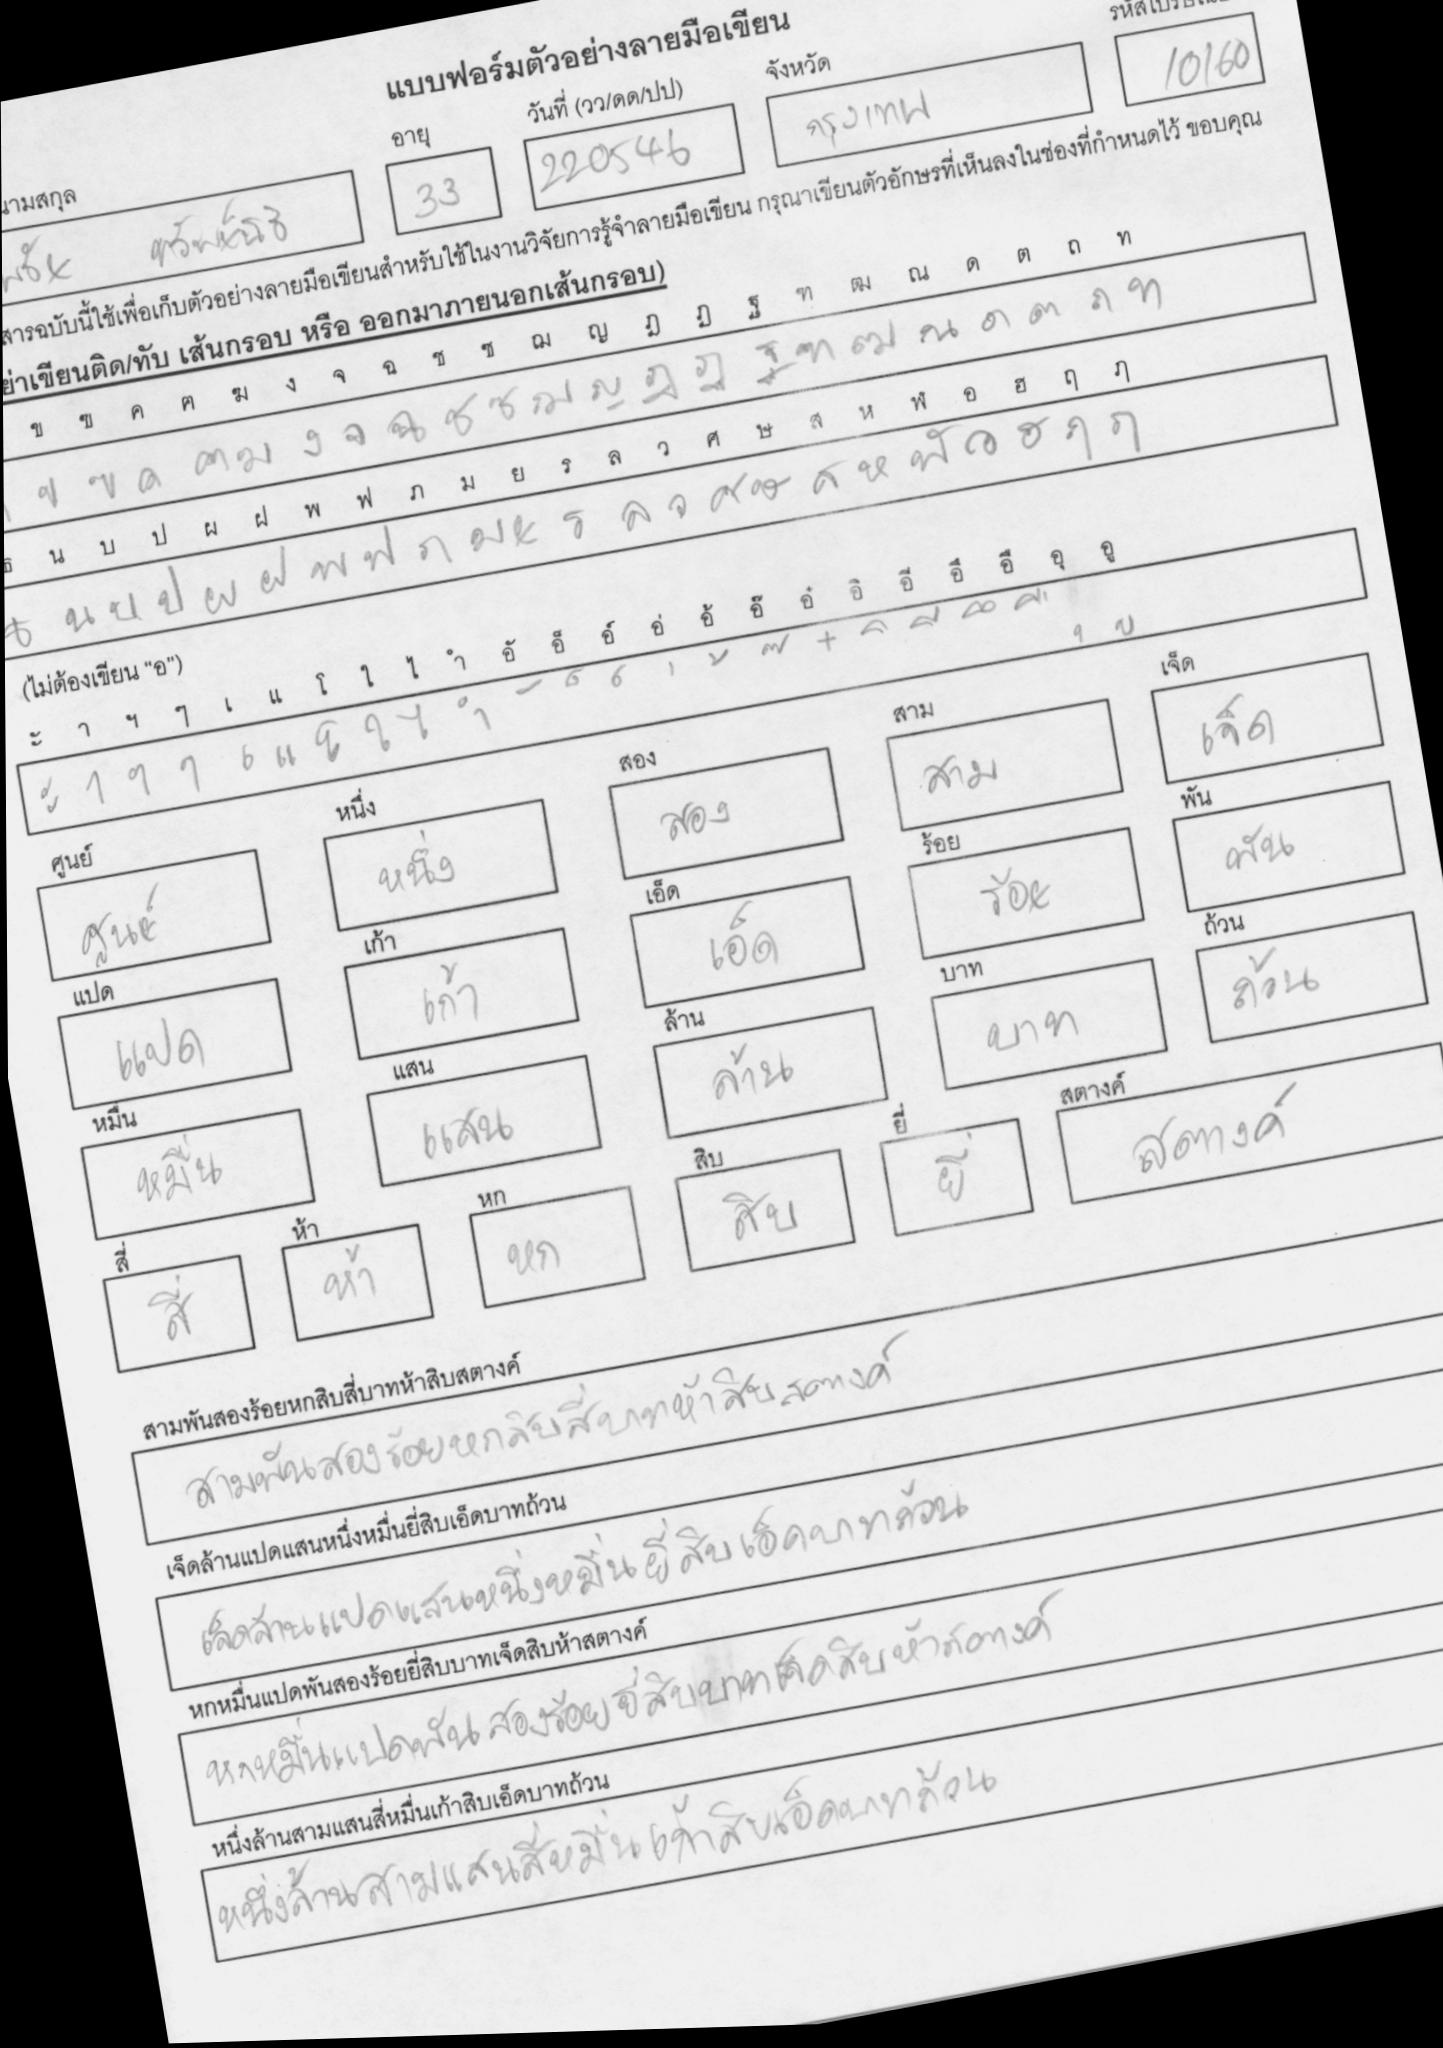 แบบฟอร์มตัวอย่างลายมือเขียน
นามสกุล อายุ วันที่ (วว/ดด/ปป) จังหวัด
33 220546 กรุงเทพ 10160
สารฉบับนี้ใช้เพื่อเก็บตัวอย่างลายมือเขียนสำหรับใช้ในงานวิจัยการรู้จำลายมือเขียน กรุณาเขียนตัวอักษรที่เห็นลงในช่องที่กำหนดไว้ ขอบคุณ
ย่าเขียนติด/ทับ เส้นกรอบ หรือ ออกมาภายนอกเส้นกรอบ)
ข ฃ ค ฅ ฆ ง จ ฉ ช ซ ฌ ญ ฎ ฏ ฐ ฑ ฒ ณ ด ต ถ ท
ข ฃ ค ฅ ฆ ง จ ฉ ช ซ ฌ ญ ฎ ฏ ฐ ฑ ฒ ณ ด ต ถ ท
ธ น บ ป ผ ฝ พ ฟ ภ ม ย ร ล ว ศ ษ ส ห ฬ อ ฮ ฤ ฦ
ธ น บ ป ผ ฝ พ ฟ ภ ม ย ร ล ว ศ ษ ส ห ฬ อ ฮ ฤ ฦ
(ไม่ต้องเขียน "อ")
ะ า ฯ ๆ เ แ โ ใ ไ ำ อั อ็ อ์ อ่ อ้ อ๊ อ๋ อิ อี อึ อื อุ อู
ะ า ฯ ๆ เ แ โ ใ ไ ำ ั ็ ์ ่ ้ ๊ ๋ ิ ี ึ ื ุ ู
ศูนย์ หนึ่ง สอง สาม เจ็ด
ศูนย์ หนึ่ง สอง สาม เจ็ด
แปด เก้า เอ็ด ร้อย พัน
แปด เก้า เอ็ด ร้อย พัน
หมื่น แสน ล้าน บาท ถ้วน
หมื่น แสน ล้าน บาท ถ้วน
สี่ ห้า หก สิบ ยี่ สตางค์
สี่ ห้า หก สิบ ยี่ สตางค์
สามพันสองร้อยหกสิบสี่บาทห้าสิบสตางค์
สามพันสองร้อยหกสิบสี่บาทห้าสิบสตางค์
เจ็ดล้านแปดแสนหนึ่งหมื่นยี่สิบเอ็ดบาทถ้วน
เจ็ดล้านแปดแสนหนึ่งหมื่นยี่สิบเอ็ดบาทถ้วน
หกหมื่นแปดพันสองร้อยยี่สิบบาทเจ็ดสิบห้าสตางค์
หกหมื่นแปดพันสองร้อยยี่สิบบาทเจ็ดสิบห้าสตางค์
หนึ่งล้านสามแสนสี่หมื่นเก้าสิบเอ็ดบาทถ้วน
หนึ่งล้านสามแสนสี่หมื่นเก้าสิบเอ็ดบาทถ้วน